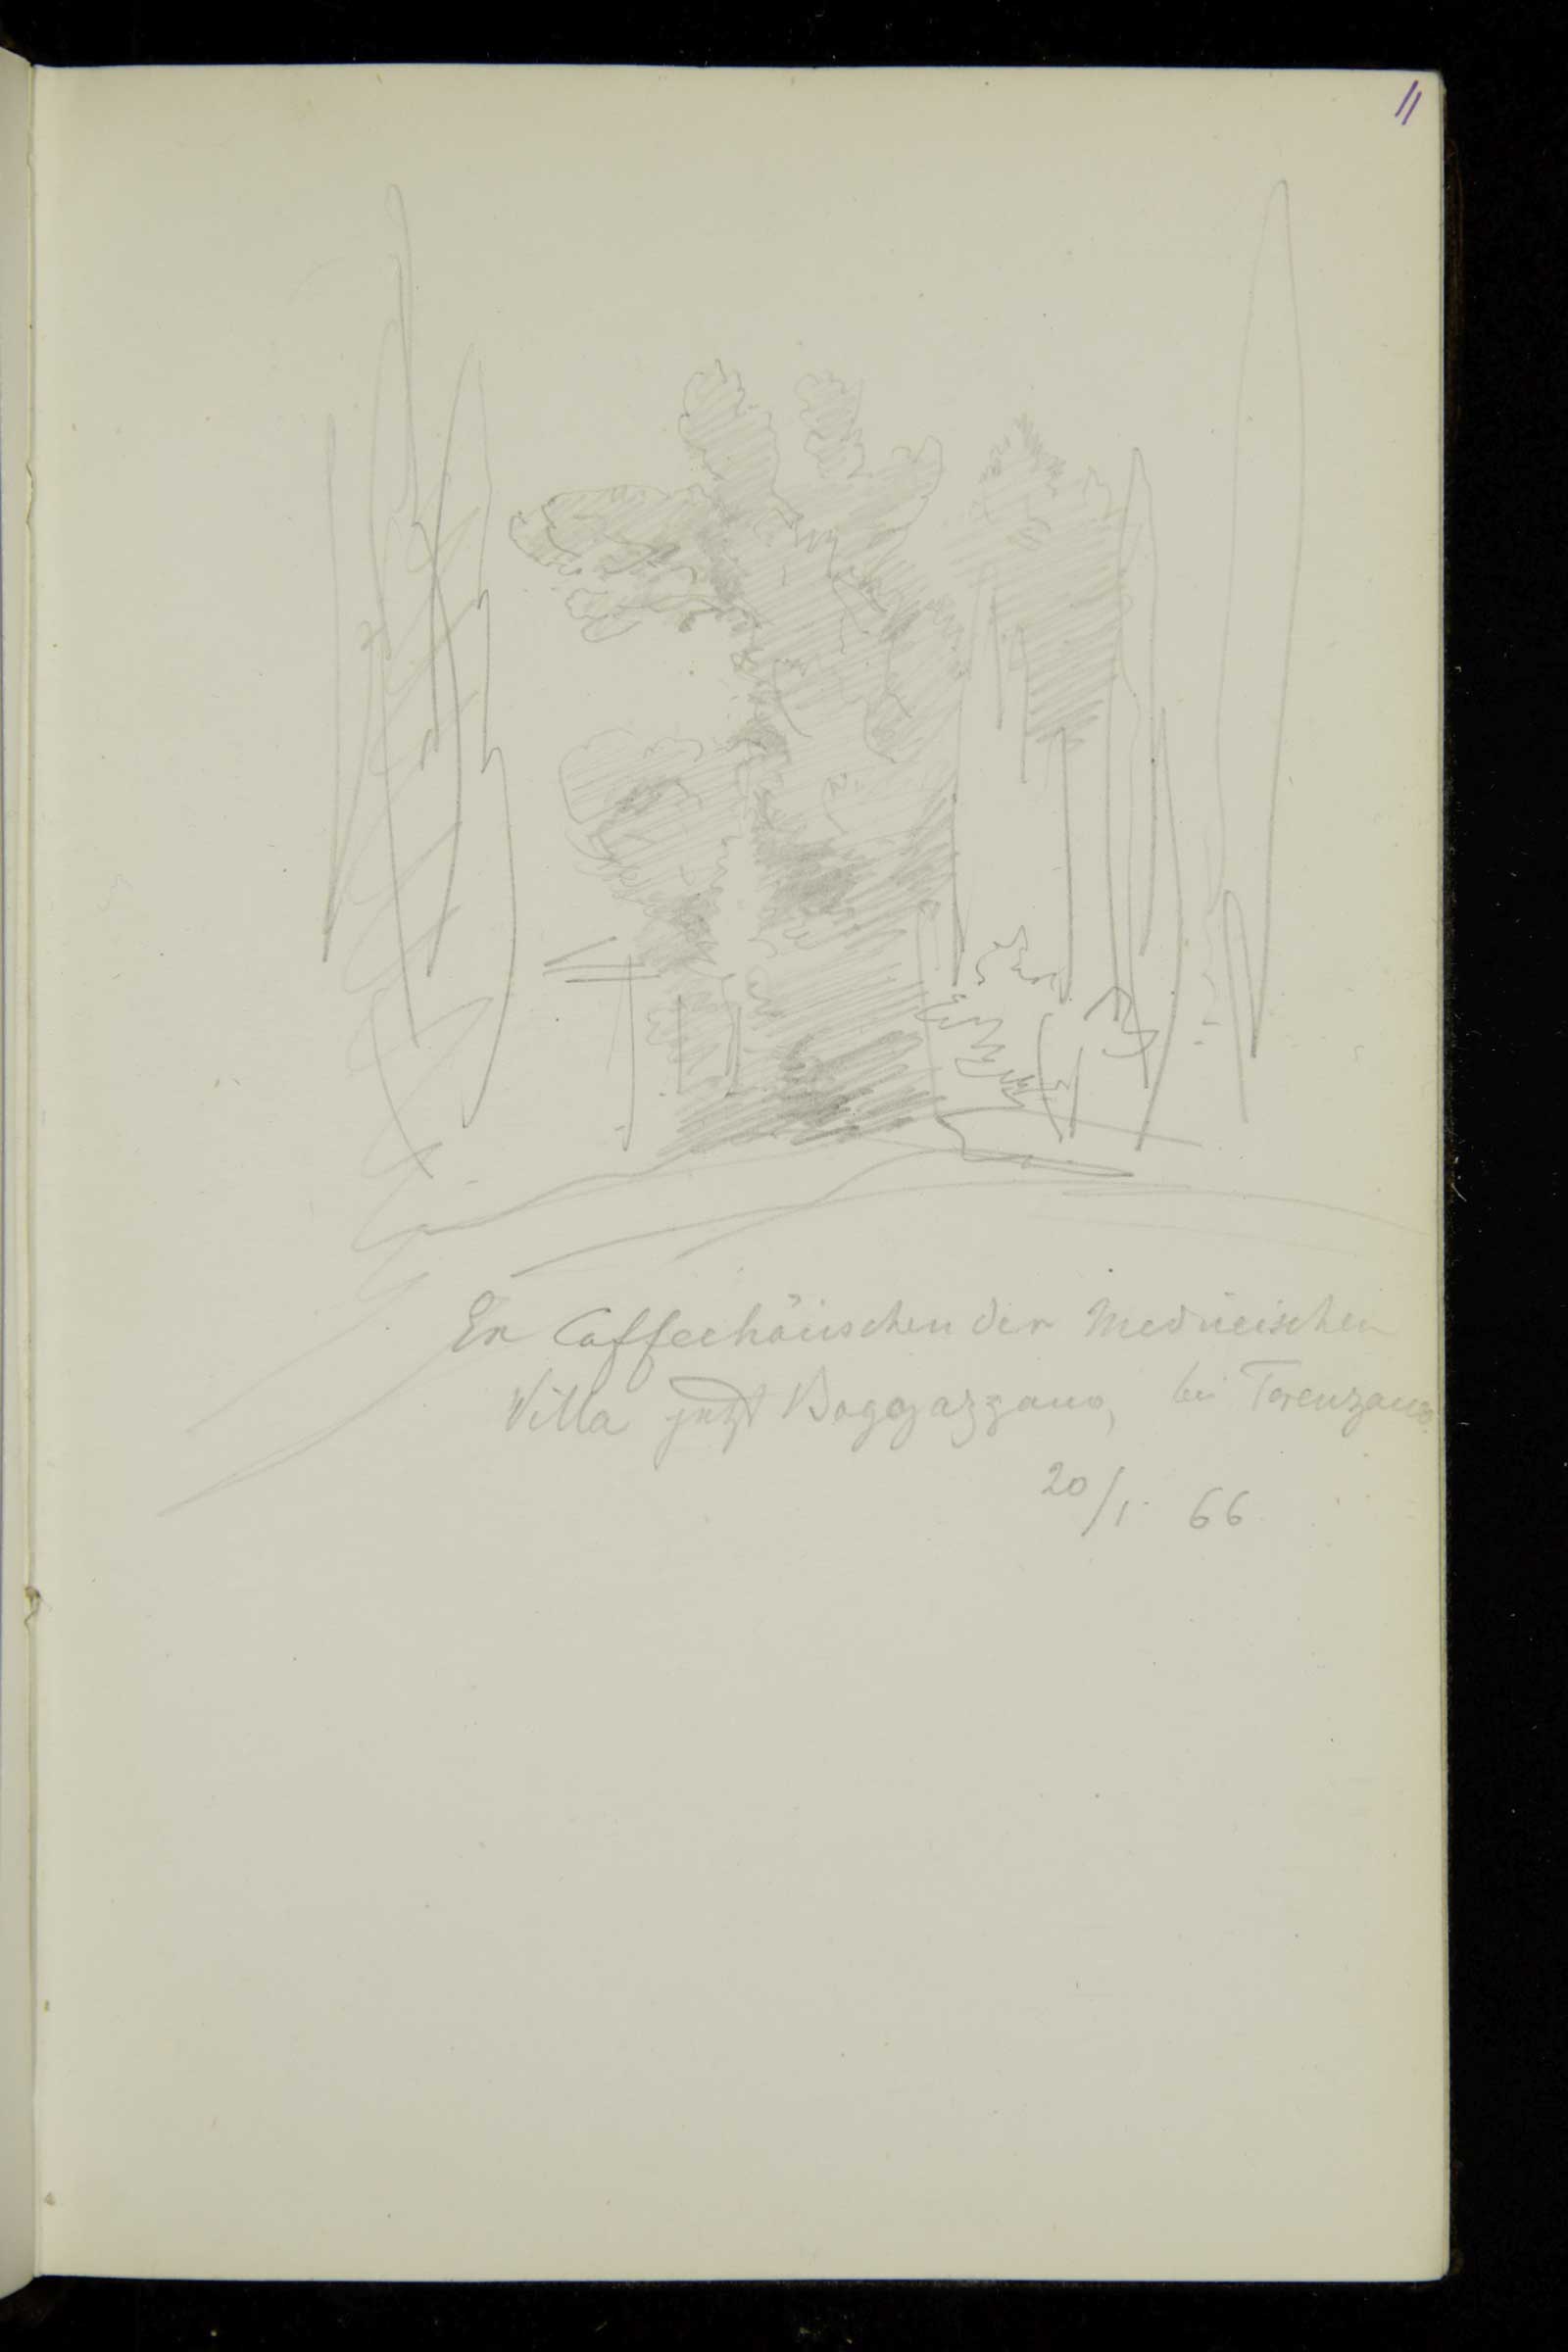 11
Ex Caffeehäuschen der Mediceischen
Villa jetzt Boggazzano, bei Terenzano
20/1. 66